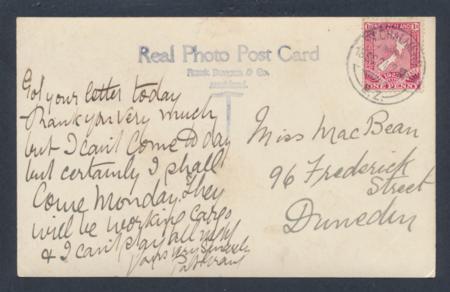 Real Photo Post Card
Frank Duncan & Co.
Auckland.
Got your letter today
Thank you very much
but I can't Come to day
but certainly I shall
Come Monday. They
will be working cargo
& I can't stay all night
Yours very sincerely
Miss MacBean
96 Frederick
Street
Dunedin
ONE PENNY
N.Z.